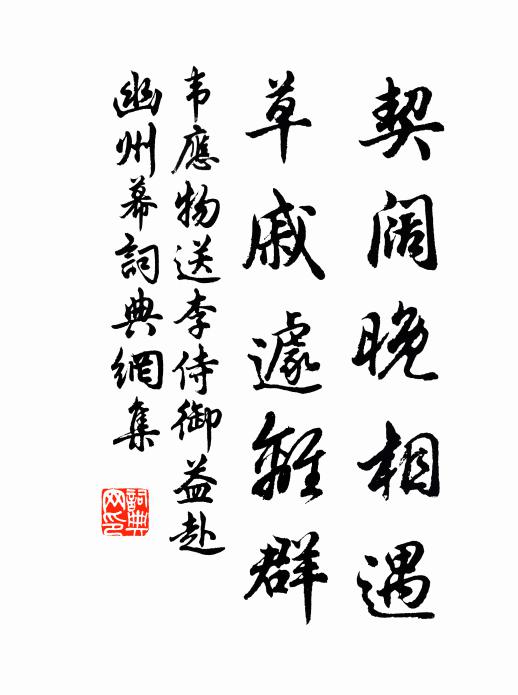 契阔晚相遇
草戚遽離群
韦應物送李侍御益赴
幽州幕詞典網集
詞典网印